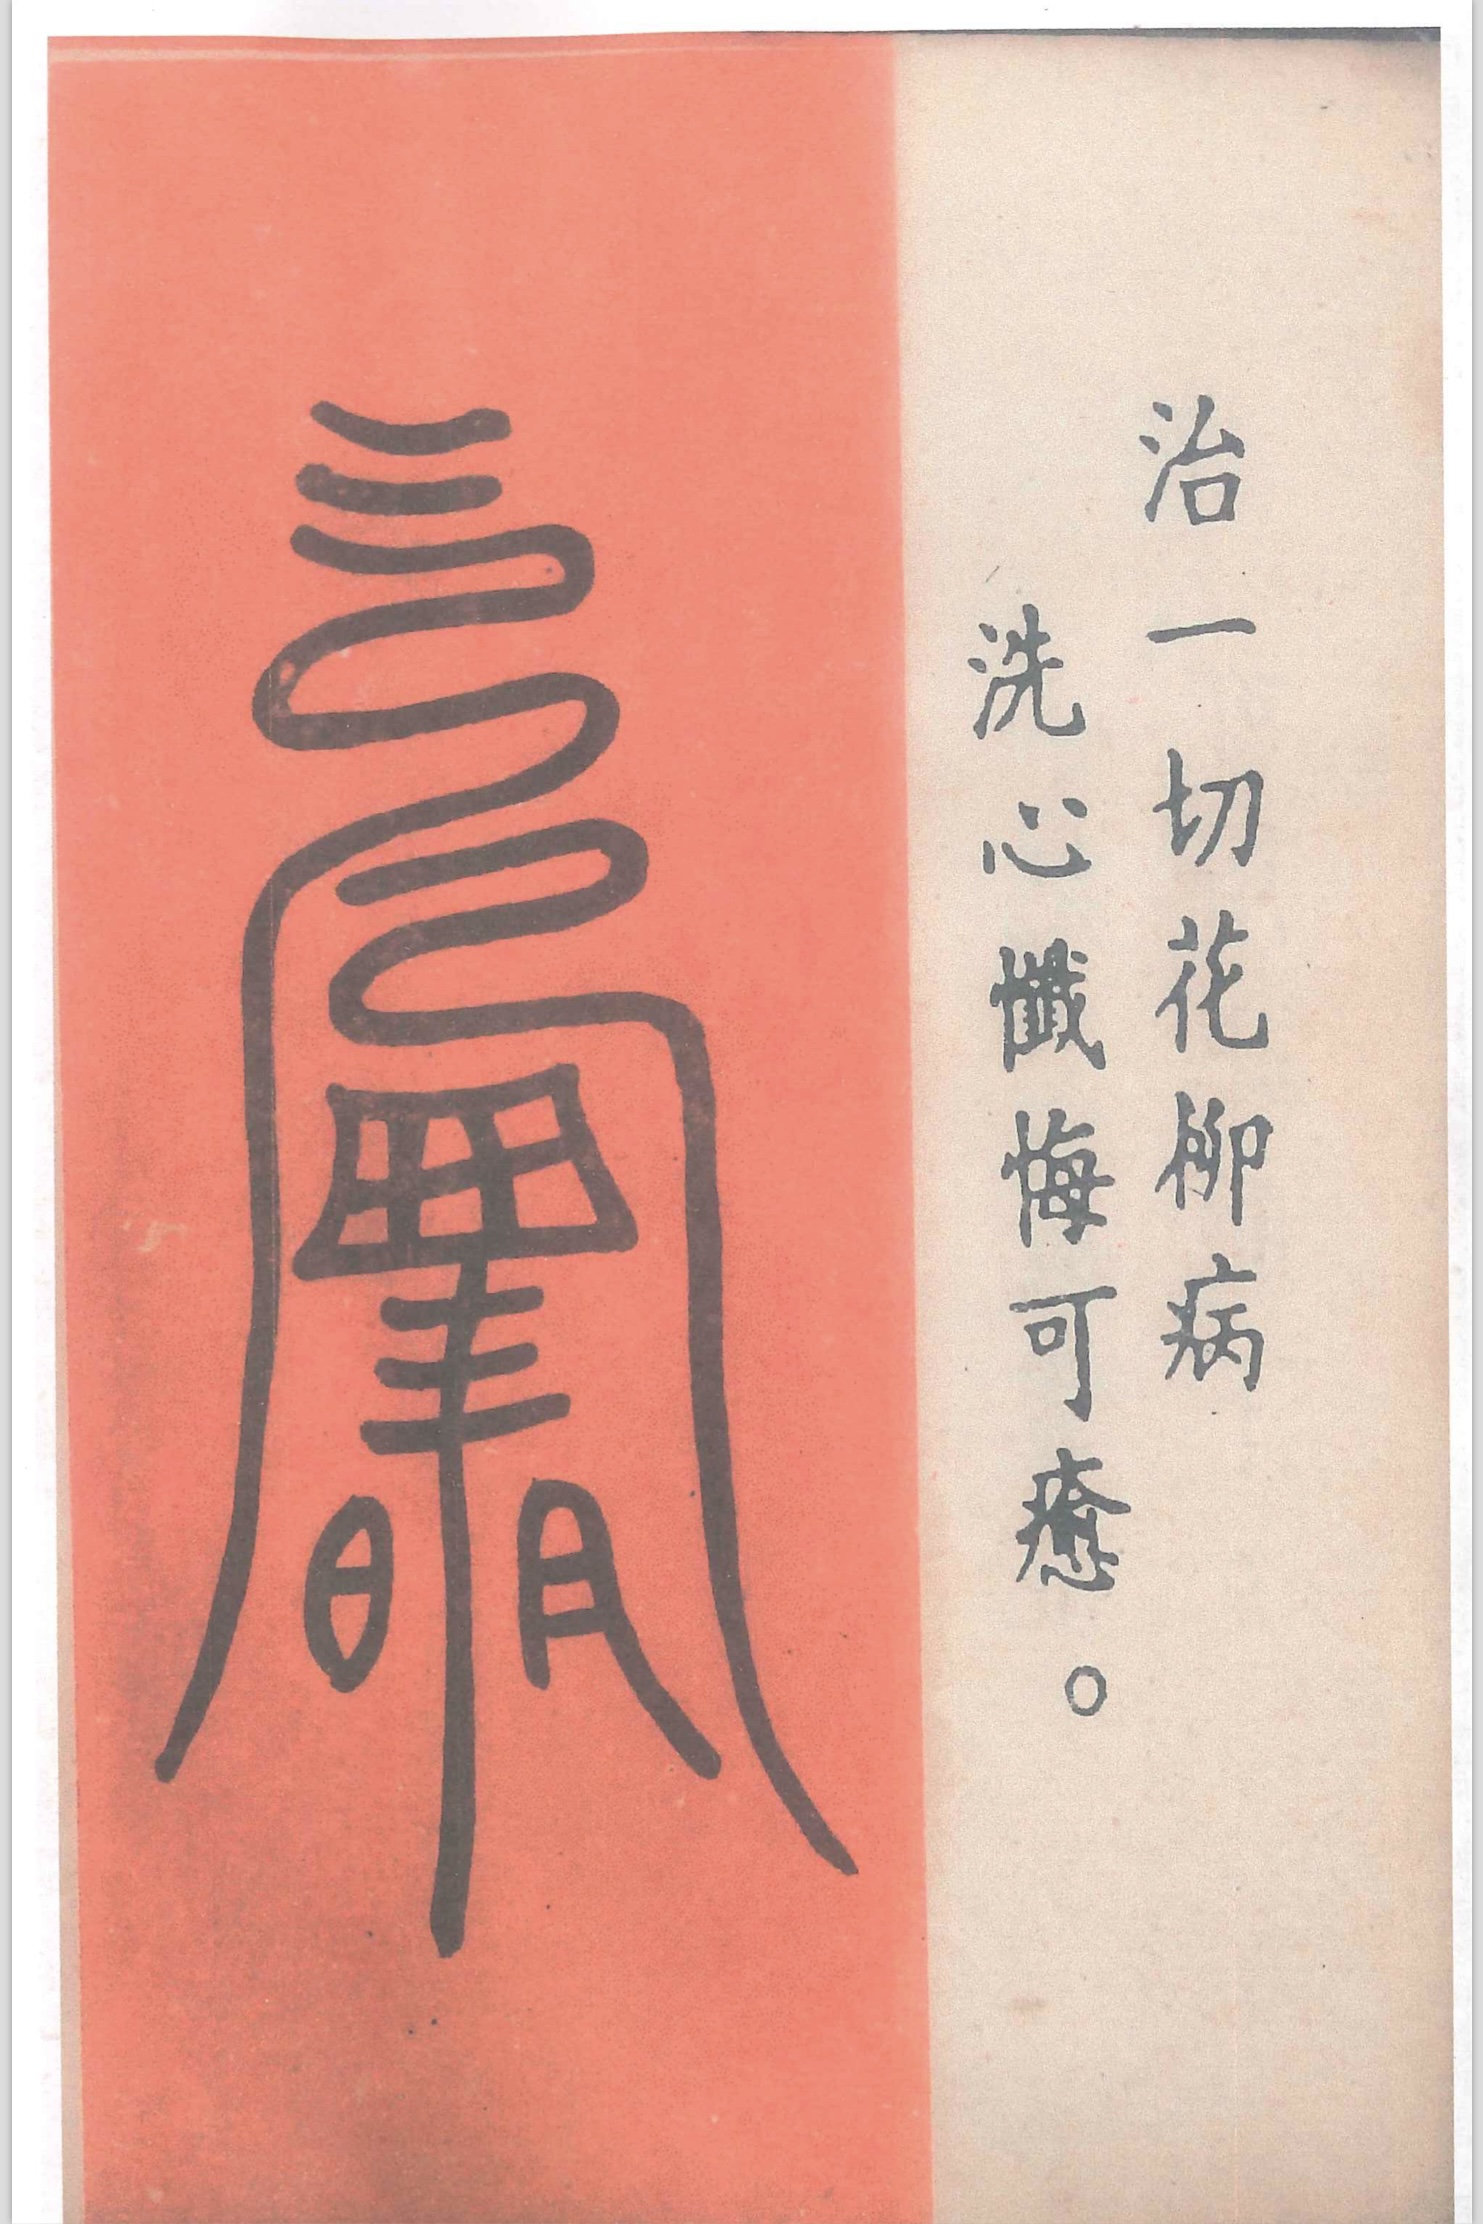 治一切花柳病
洗心懺悔可癒。